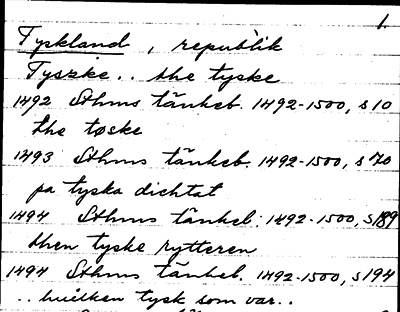 1.
Tyskland, republik
Tyszke.. the tyske
1492 Sthms tänkeb. 1492-1500, s 10
the tøske
1493 Sthms tänkeb. 1492-1500, s 70
pa tyska dichtat
1494 Sthms tänkeb. 1492-1500, s 189
then tyske rytteren
1494 Sthms tänkeb. 1492-1500, s 194
.. huilken tysk som var..